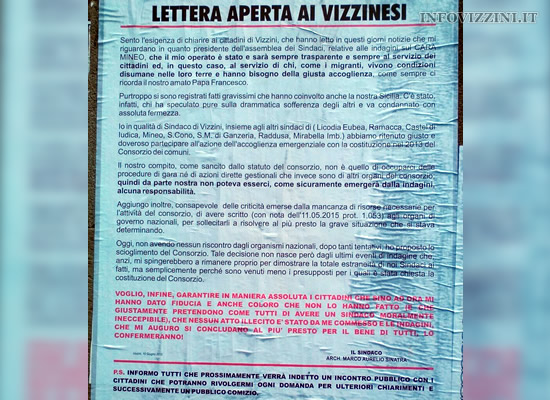 INFOVIZZINI.IT
LETTERA APERTA AI VIZZINESI
Sento l'esigenza di chiarire ai cittadini di Vizzini, che hanno letto in questi giorni notizie che mi
riguardano in quanto presidente dell'assemblea dei Sindaci, relative alle indagini sul CARA
MINEO, che il mio operato è stato e sarà sempre trasparente e sempre al servizio dei
cittadini ed, in questo caso, al servizio di chi, come i migranti, vivono condizioni
disumane nelle loro terre e hanno bisogno della giusta accoglienza, come sempre ci
ricorda il nostro amato Papa Francesco.
Purtroppo si sono registrati fatti gravissimi che hanno coinvolto anche la nostra Sicilia. C'è stato,
infatti, chi ha speculato pure sulla drammatica sofferenza degli altri e va condannato con
assoluta fermezza.
Io in qualità di Sindaco di Vizzini, insieme agli altri sindaci di ( Licodia Eubea, Ramacca, Castel di
Iudica, Mineo, S.Cono, S.M. di Ganzeria, Raddusa, Mirabella Imb.) abbiamo ritenuto giusto e
doveroso partecipare all'azione dell'accoglienza emergenziale con la costituzione nel 2013 del
Consorzio dei comuni.
Il nostro compito, come sancito dallo statuto del consorzio, non è quello di occuparci delle
procedure di gara né di azioni dirette gestionali che invece sono di altri organi del consorzio,
quindi da parte nostra non poteva esserci, come sicuramente emergerà dalla indagini,
alcuna responsabilità.
Aggiungo inoltre, consapevole delle criticità emerse dalla mancanza di risorse necessarie per
l'attività del consorzio, di avere scritto (con nota dell'11.05.2015 prot. 1.053) agli organi di
governo nazionali, per sollecitarli a risolvere al più presto la grave situazione che si stava
determinando.
Oggi, non avendo nessun riscontro dagli organismi nazionali, dopo tanti tentativi, ho proposto lo
scioglimento del Consorzio. Tale decisione non nasce però dagli ultimi eventi di indagine che,
anzi, mi spingerebbero a rimanere proprio per dimostrare la totale estraneità di noi Sindaci ai
fatti, ma semplicemente perché sono venuti meno i presupposti per i quali è stata chiesta la
costituzione del Consorzio.
VOGLIO, INFINE, GARANTIRE IN MANIERA ASSOLUTA I CITTADINI CHE SINO AD ORA MI
HANNO DATO FIDUCIA E ANCHE COLORO CHE NON LO HANNO FATTO (E CHE
GIUSTAMENTE PRETENDONO COME TUTTI DI AVERE UN SINDACO MORALMENTE
INECCEPIBILE), CHE NESSUN ATTO ILLECITO E' STATO DA ME COMMESSO E LE INDAGINI,
CHE MI AUGURO SI CONCLUDANO AL PIU' PRESTO PER IL BENE DI TUTTI, LO
CONFERMERANNO!
IL SINDACO
ARCH. MARCO AURELIO SINATRA
P.S. INFORMO TUTTI CHE PROSSIMAMENTE VERRÀ INDETTO UN INCONTRO PUBBLICO CON I
CITTADINI CHE POTRANNO RIVOLGERMI OGNI DOMANDA PER ULTERIORI CHIARIMENTI E
SUCCESSIVAMENTE UN PUBBLICO COMIZIO.